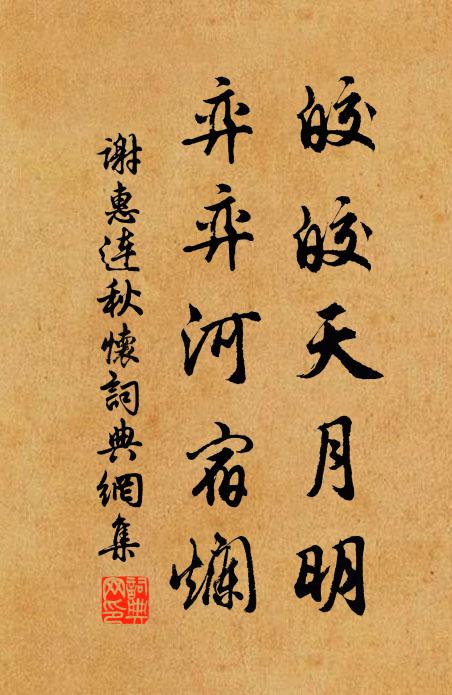 皎皎天月明
弈弈河宿爛
謝惠連秋懷詞典網集
詞典
网印